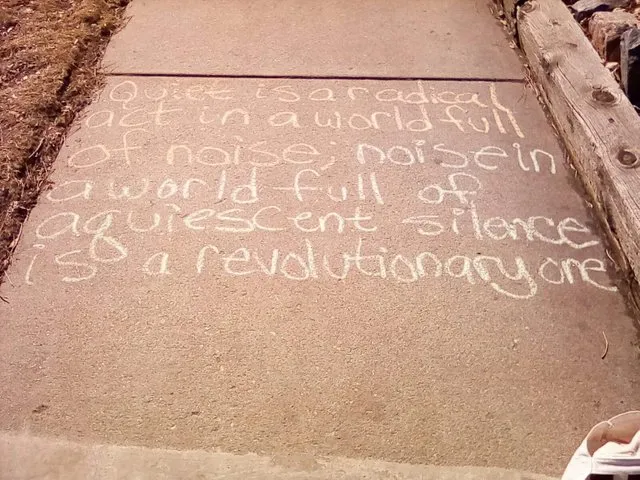 Quiet is a radical
act in a world full
of noise; noise in
a world full of
aquiescent silence
is a revolutionary one